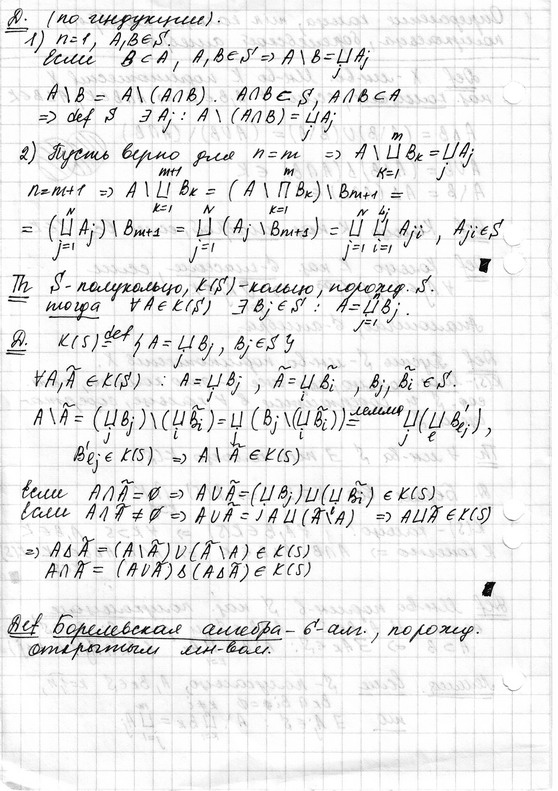 Д. (по индукции).
1) n=1, A,B∈S.
Если B⊂A, A,B∈S ⇒ A\B=⊔_j A_j
A\B = A\(A∩B). A∩B∈S, A∩B⊂A
⇒ def S ∃A_j : A\(A∩B)=⊔_j A_j
2) Пусть верно для n=m ⇒ A\⊔_{k=1}^{m} B_k=⊔_j A_j
n=m+1 ⇒ A\⊔_{k=1}^{m+1} B_k = (A\⊓_{k=1}^{m} B_k)\B_{m+1} =
= (⊔_{j=1}^{N} A_j)\B_{m+1} = ⊔_{j=1}^{N} (A_j\B_{m+1}) = ⊔_{j=1}^{N} ⊔_{i=1}^{L_j} A_{ji}, A_{ji}∈S
Th S-полукольцо, K(S)-кольцо, порожд. S.
тогда ∀A∈K(S) ∃B_j∈S : A=⊔_{j=1} B_j.
Д. K(S) =def {A=⊔_j B_j, B_j∈S}
∀A,Ã∈K(S) : A=⊔_j B_j, Ã=⊔_i B̃_i, B_j, B̃_i∈S.
A\Ã=(⊔_j B_j)\(⊔_i B̃_i)=⊔_j (B_j\(⊔_i B̃_i))= лемма ⊔_j(⊔_e B'_{ej}),
B'_{ej}∈K(S) ⇒ A\Ã∈K(S)
Если A∩Ã=∅ ⇒ A∪Ã=(⊔B_j)⊔(⊔B̃_i)∈K(S)
Если A∩Ã≠∅ ⇒ A∪Ã= A⊔(Ã\A) ⇒ A⊔Ã∈K(S)
⇒ A∆Ã=(A\Ã)∪(Ã\A)∈K(S)
A∩Ã= (A∪Ã)∆(A∆Ã)∈K(S)
Def Борелевская алгебра – б-алг., порожд.
открытым мн-вом.